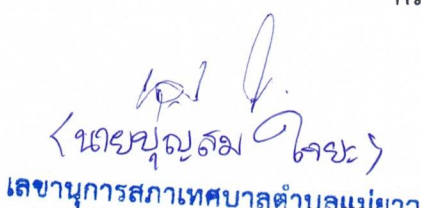 (นายบุญสม ไชยะ)
เลขานุการสภาเทศบาลตำบลแม่ยาว